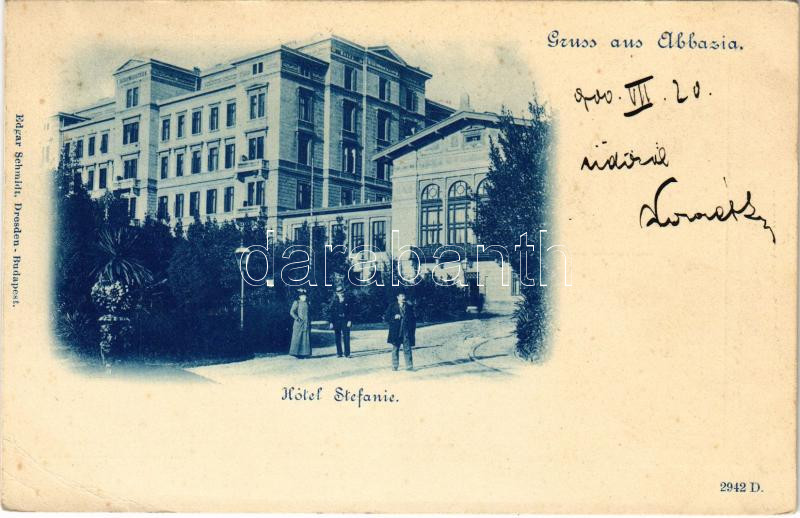 Gruss aus Abbazia.
900. VII. 20.
üdözöl
Edgar Schmidt, Dresden - Budapest.
darabanth
Hôtel Stefanie.
2942 D.